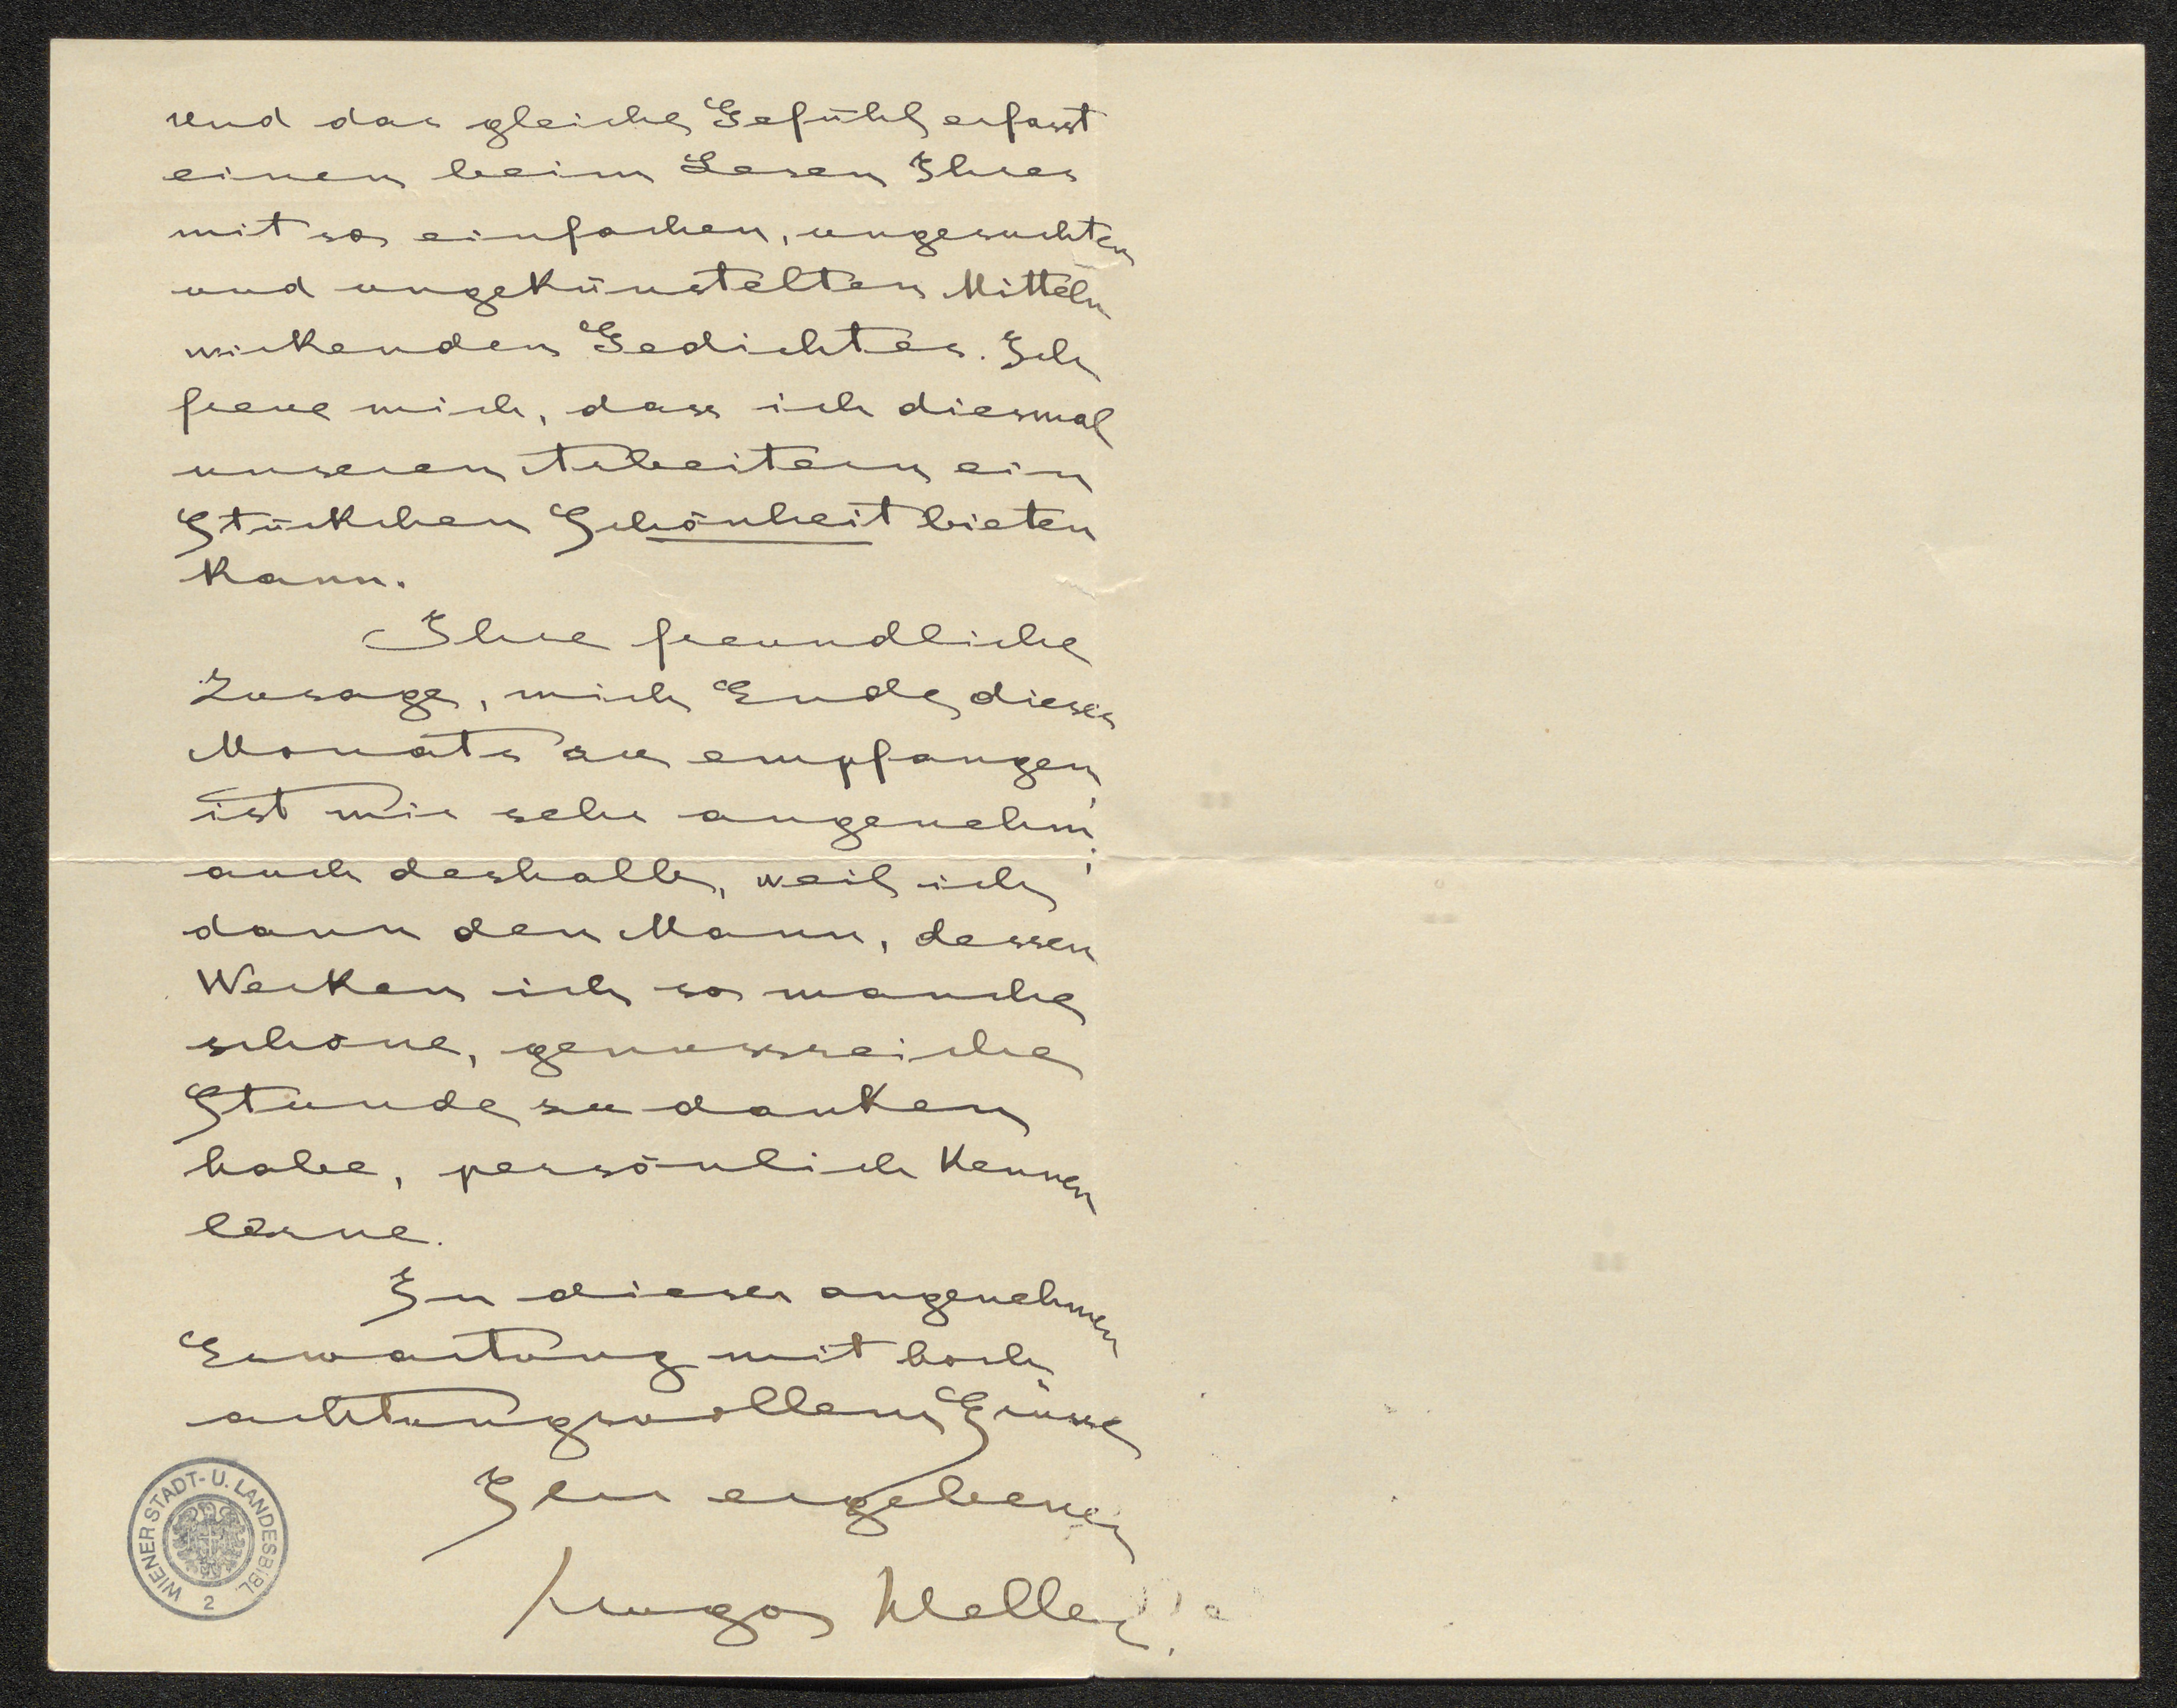 und das gleiche Gefühl erfasst
einen beim Lesen Ihres
mit so einfachen, ungesuchten
und ungekünstelten Mitteln
wirkenden Gedichtes. Ich
freue mich, dass ich diesmal
unseren Arbeitern ein
Stückchen Schönheit bieten
kann.
Ihre freundliche
Zusage, mich Ende dieses
Monats zu empfangen,
ist mir sehr angenehm;
auch deshalb, weil ich
dann den Mann, dessen
Werken ich so manche
schöne, genussreiche
Stunde zu danken
habe, persönlich kennen
lerne.
In dieser angenehmen
Erwartung mit hoch-
achtungsvollem Grusse
Ihr ergebener
Hugo Heller.
WIENER STADT- U. LANDESBIBL.
2